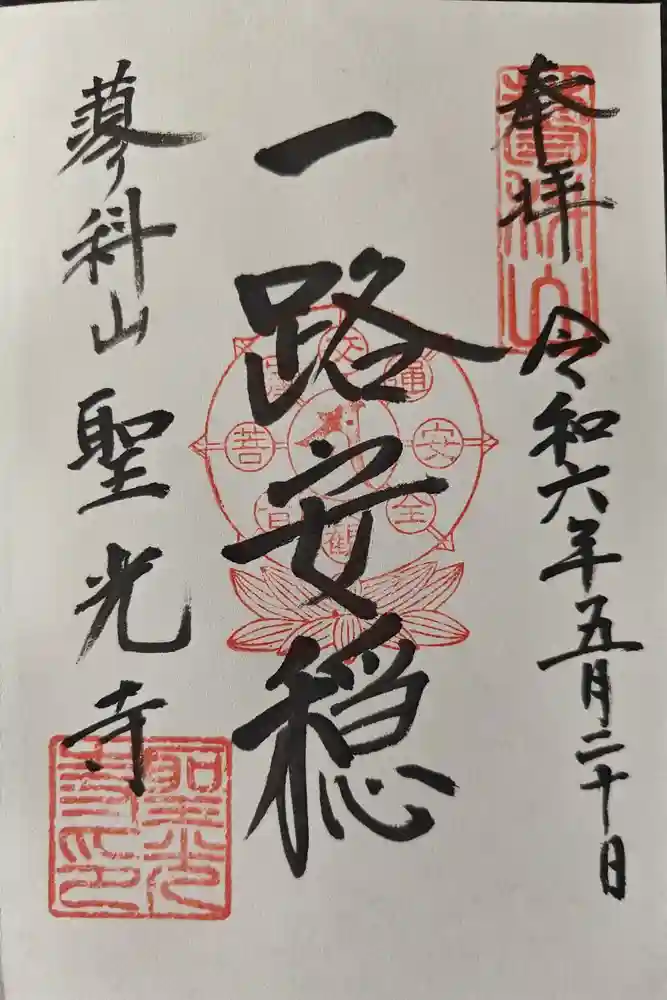 奉拝
令和六年五月二十日
一路安穏
蓼科山
聖光寺
蓼科山
交通安全観音菩薩
聖光寺印